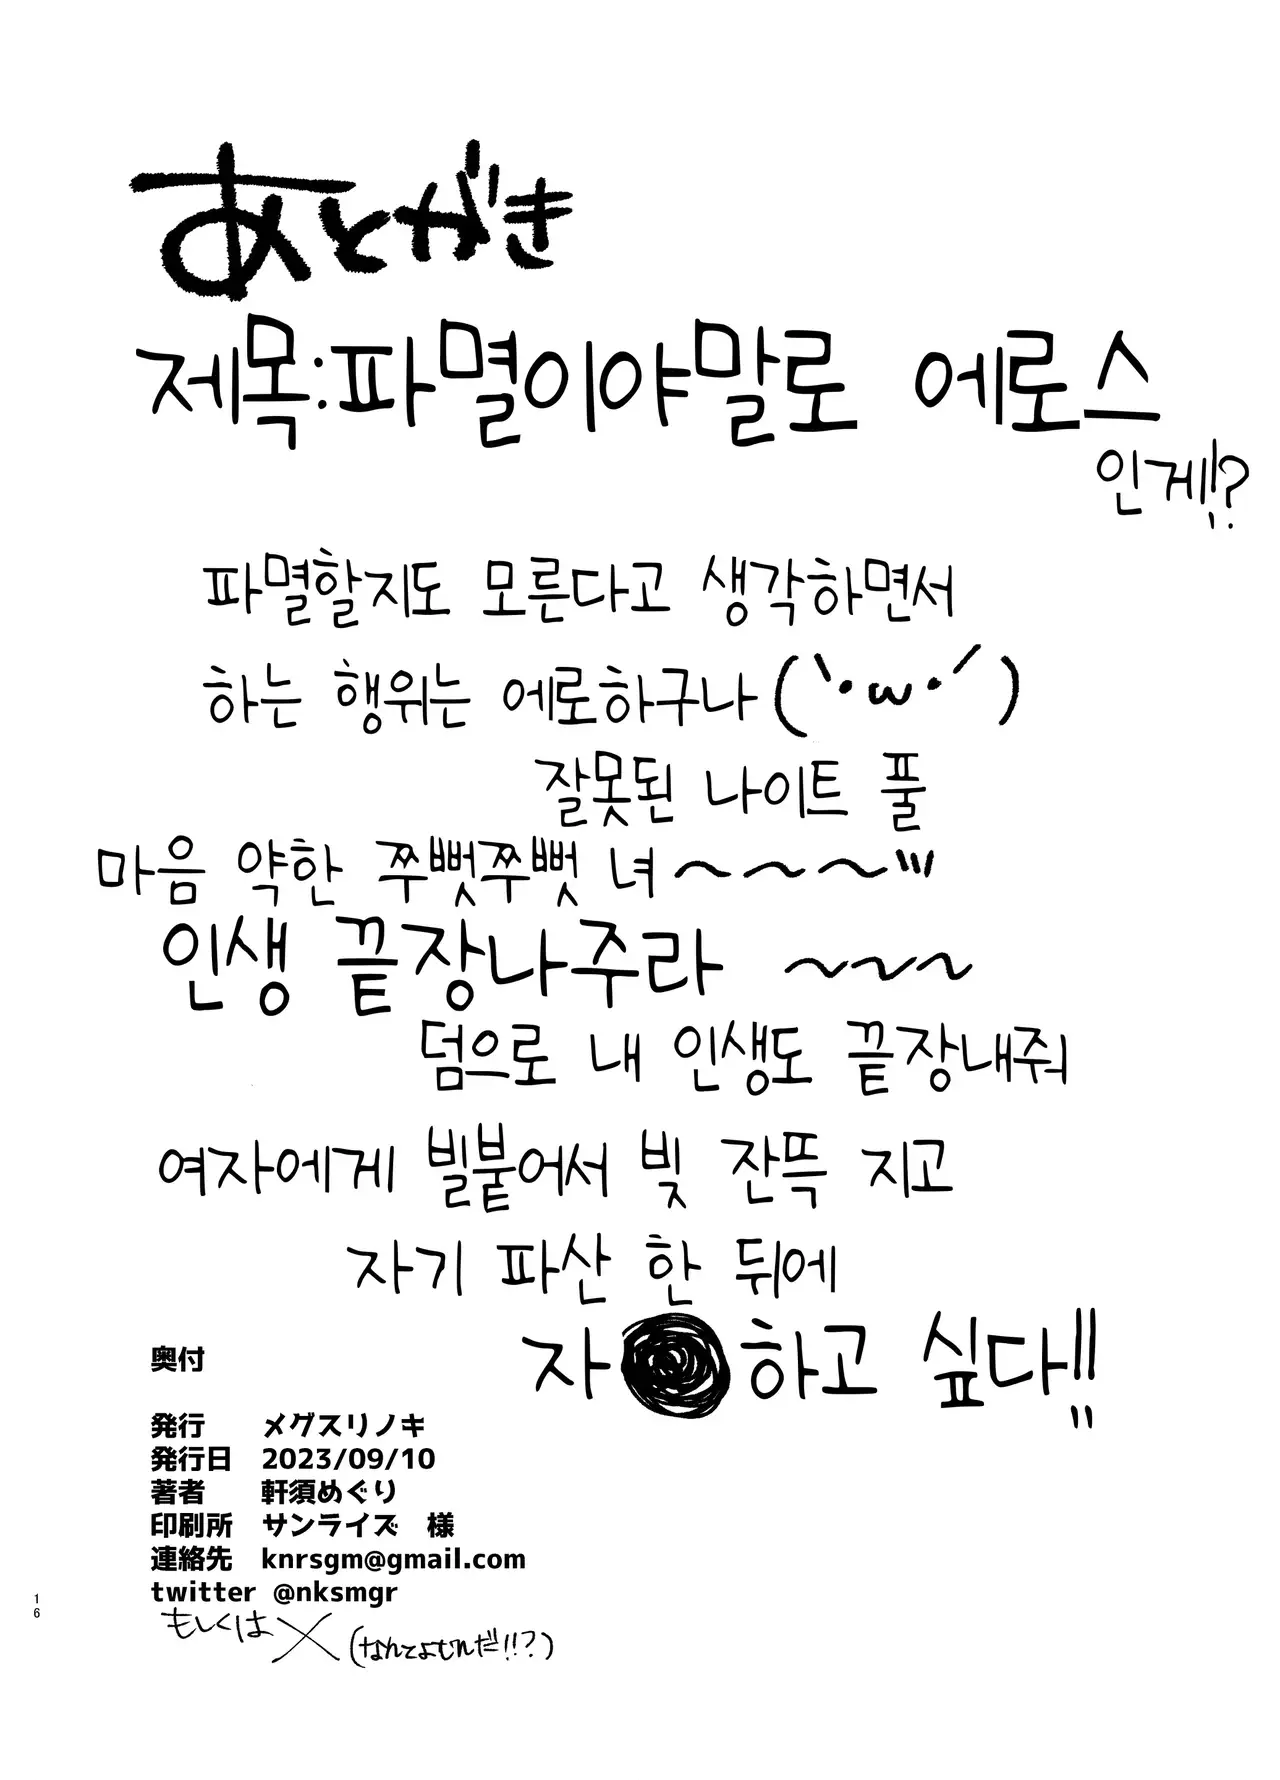 あとがき
제목:파멸이야말로 에로스
인게!?
파멸할지도 모른다고 생각하면서
하는 행위는 에로하구나(｀･ω･´)
잘못된 나이트 풀
마음 약한 쭈뼛쭈뼛 녀～～～
인생 끝장나주라 ～～～
덤으로 내 인생도 끝장내줘
여자에게 빌붙어서 빚 잔뜩 지고
자기 파산 한 뒤에
자●하고 싶다!!
奥付
発行 メグスリノキ
発行日 2023/09/10
著者 軒須めぐり
印刷所 サンライズ 様
連絡先 knrsgm@gmail.com
twitter @nksmgr
もしくは X (なんてよむんだ!!?)
16